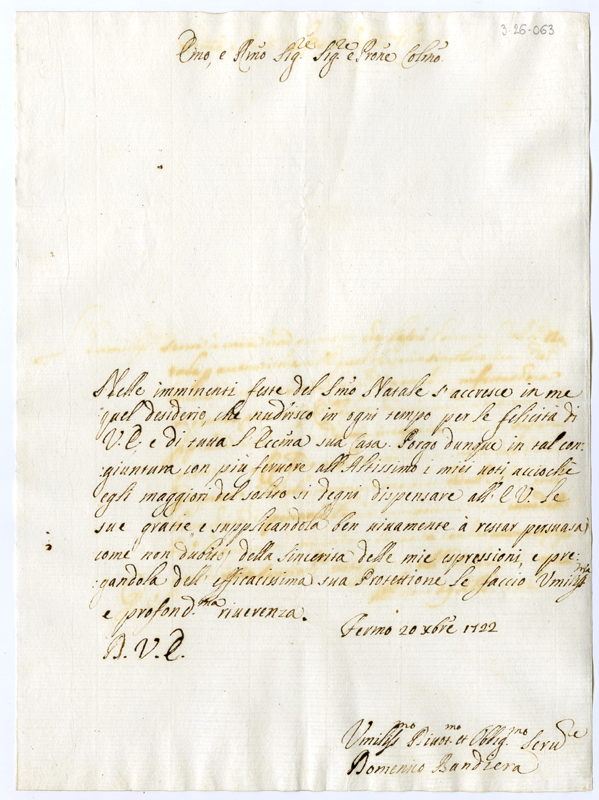 3-26-063
Emo, e Rmo Sig.re Sig.re e Prone Colmo
Nelle imminenti feste del Smo Natale s'accresce in me
quel desiderio, che nudrisco in ogni tempo per le felicità di
V.E., e di tutta l'Eccma sua Casa. Porgo dunque in tal con:
:giuntura con più fervore all'Altissimo i miei voti acciochè
egli maggiori del solito si degni dispensare all'E.V. le
sue gratie, e supplicandola ben vivamente à restar persuasa,
come non dubito, della sincerità delle mie espressioni, e pre:
:gandola dell'efficacissima sua Protettione le faccio Umiliss
e profond.ma riverenza.
D. V. E.
Fermo 20 Xbre 1722
Umiliss.mo Divot.mo et Obblig.mo Serv.e
Domenico Bandiera